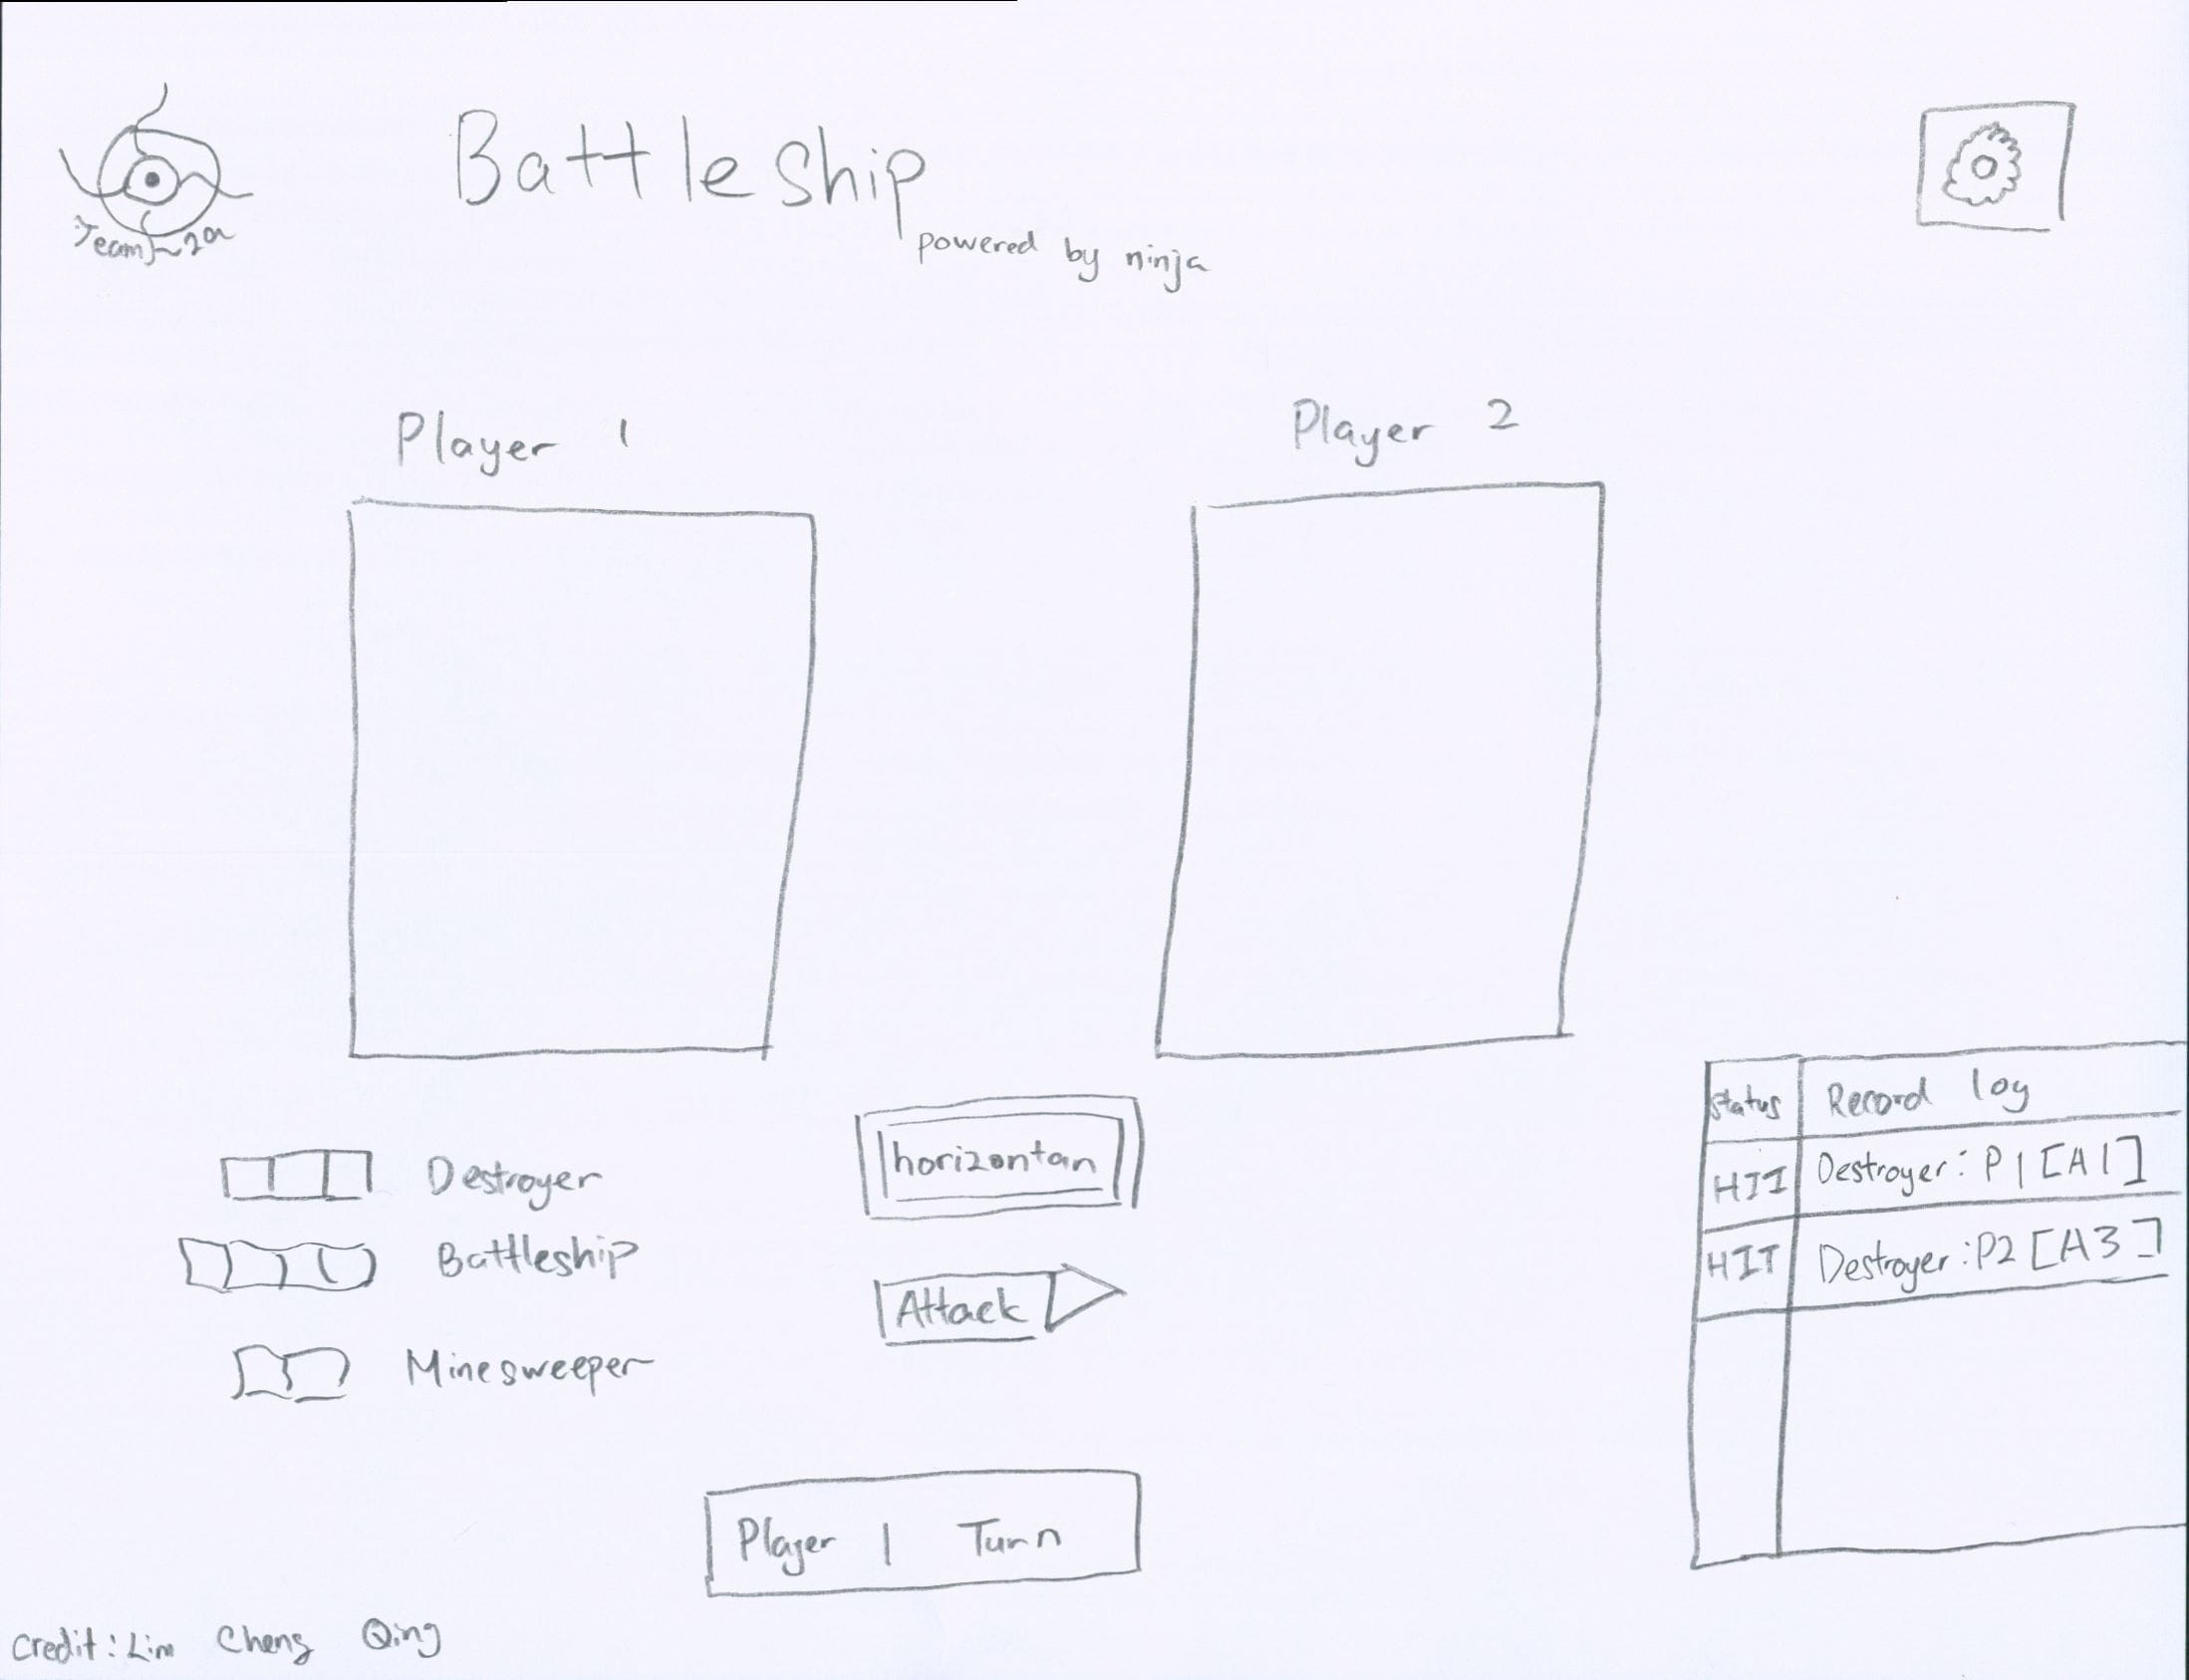 Battleship
powered by ninja
Team
Player 1
Player 2
Destroyer
Battleship
Minesweeper
horizontan
Attack
Status Record log
HIT Destroyer: P1[A1]
HIT Destroyer:P2[A3]
Player 1 Turn
Credit: Lim Cheng Qing